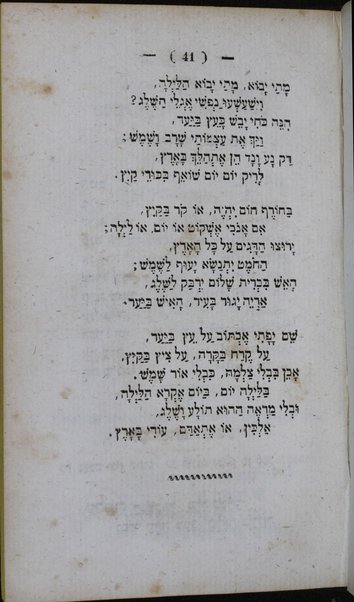 — ( 41 ) —
מָתַי יָבוֹא, מָתַי יָבוֹא הַלַּיְלָה,
וִישַׁעַשְׁעוּ נַפְשִׁי אֶגְלֵי הַשֶּׁלֶג?
הִנֵּה כֹּחִי יָבֵשׁ כָּעֵץ בַּיַּעַר,
וַיַּךְ אֶת עַצְמוֹתַי שָׁרָב וָשֶׁמֶשׁ;
דַּק נָע וָנָד הֵן אֶתְהַלֵּךְ בָּאָרֶץ,
לָרִיק יוֹם יוֹם שׁוֹאֵף בִּכּוּרֵי קַיִץ.
בַּחוֹרֶף חוֹם יִהְיֶה, אוֹ קֹר בַּקַּיִץ,
אִם אָנֹכִי אֶשְׁקוֹט אוֹ יוֹם, אוֹ לַיְלָה;
יָרוּצוּ הַדָּגִים עַל כָּל הָאָרֶץ,
הַחֹמֶט יִתְנַשֵּׂא יָעוּף לַשֶּׁמֶשׁ;
הָאֵשׁ בִּבְרִית שָׁלוֹם יִדְבַּק לַשֶּׁלֶג,
אַרְיֵה יָגוּר בָּעִיר, הָאִישׁ בַּיַּעַר.
שֵׁם יָפָתִי אֶכְתּוֹב עַל עֵץ בַּיַּעַר,
עַל קֶרַח בַּקָּרָה, עַל צִיץ בַּקַּיִץ,
אָכֵן בִּבְלִי צַלְמָהּ, כִּבְלִי אוֹר שֶׁמֶשׁ.
בַּלַּיְלָה יוֹם, בַּיּוֹם אֶקְרָא הַלַּיְלָה,
וּבְלִי מַרְאֶהָ הַהוּא תוֹלָע וָשֶׁלֶג,
אַלְבִּין, אוֹ אֶתְאַדַּם, עוֹדִי בָּאָרֶץ.